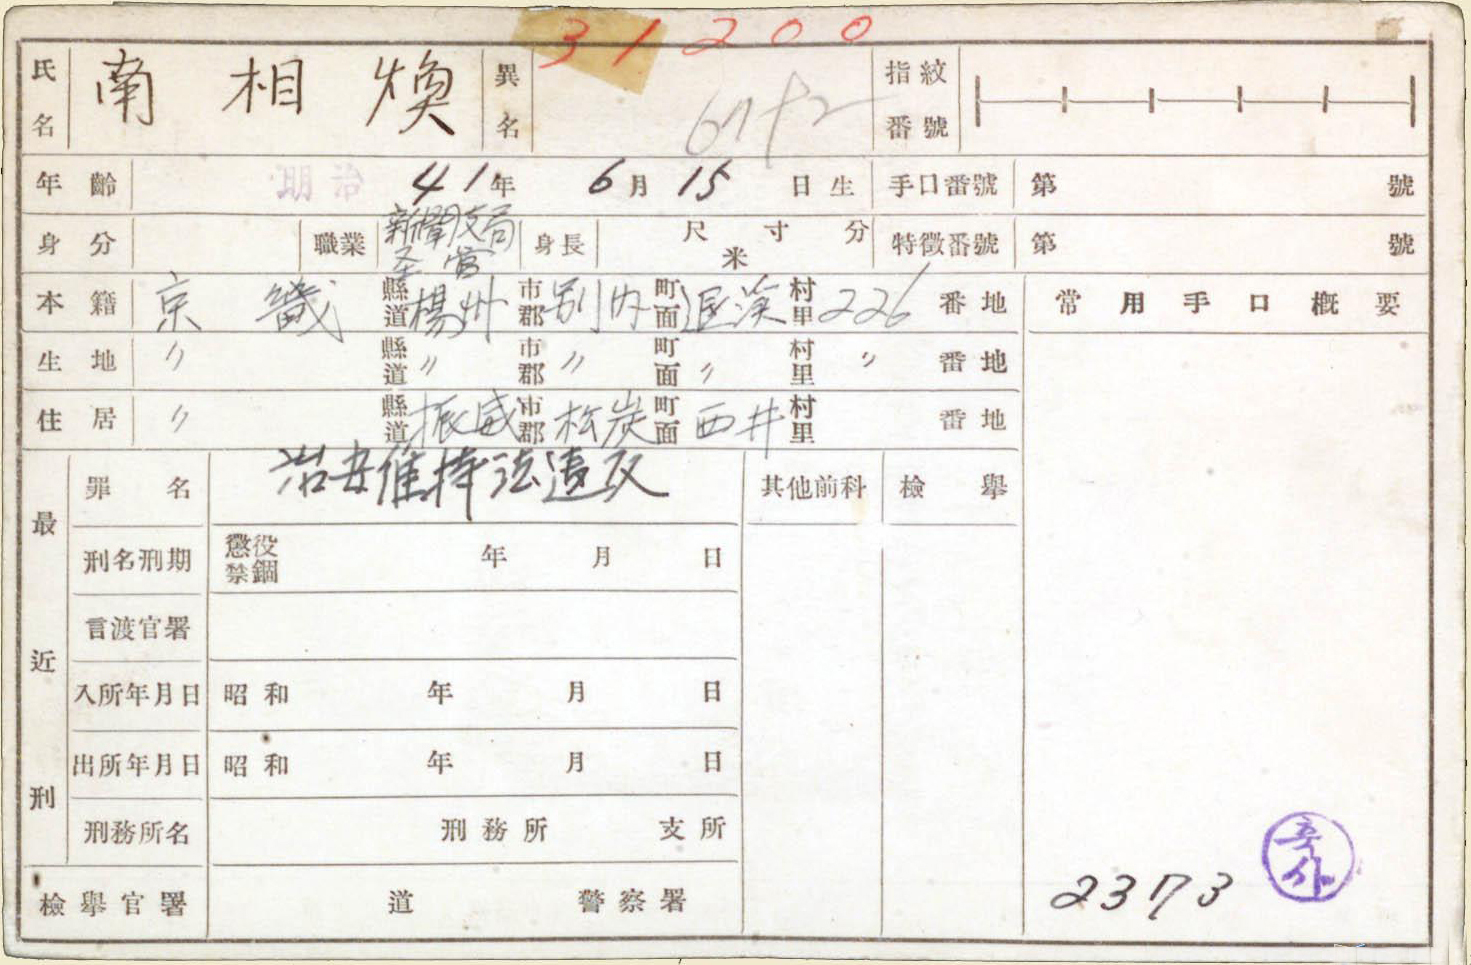 31200
氏名 南相煥 異名 指紋番號
年齡 明治 41年 6月 15日生 手口番號 第 號
身分 職業 新聞支局经营 身長 尺寸分 米 特徵番號 第 號
本籍 京畿 縣道 楊州 市郡 別內 町面 退溪 村里 226 番地 常用手口概要
生地 〃 縣道 〃 市郡 〃 町面 〃 村里 〃 番地
住居 〃 縣道 振威 市郡 松炭 町面 西井 村里 番地
最近刑
罪名 治安維持法違反 其他前科 檢擧
刑名刑期 懲役 禁錮 年 月 日
言渡官署
入所年月日 昭和 年 月 日
出所年月日 昭和 年 月 日
刑務所名 刑務所 支所
檢擧官署 道 警察署
2373